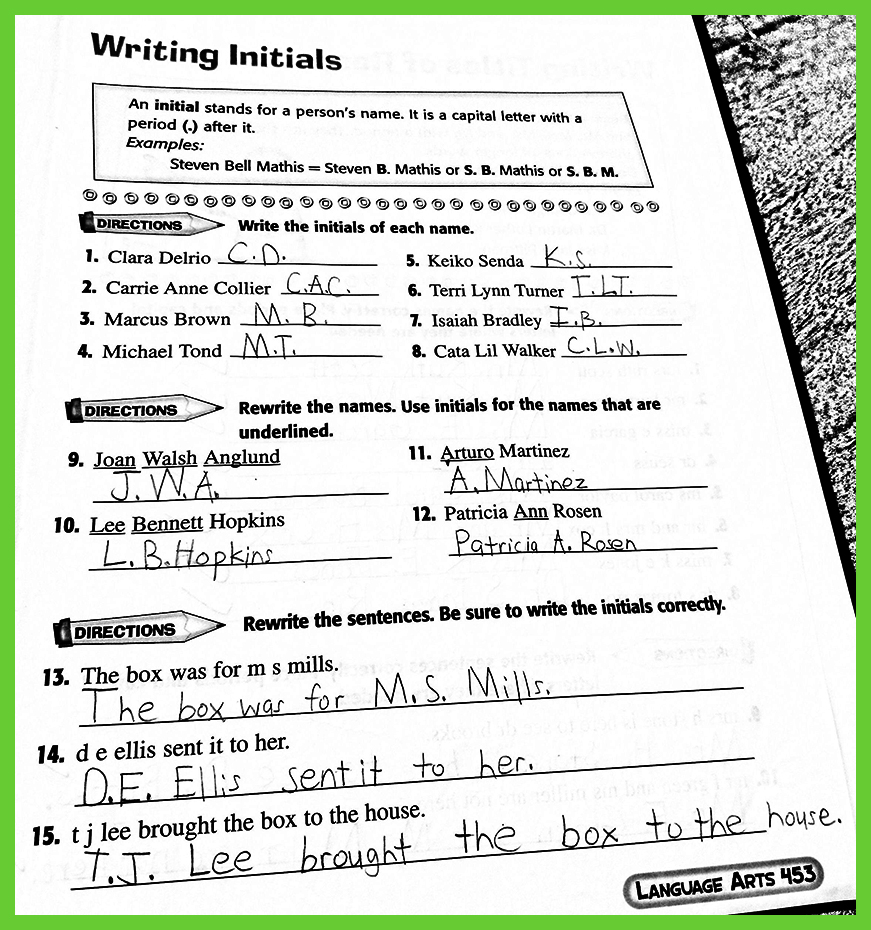 Writing Initials
An initial stands for a person's name. It is a capital letter with a
period (.) after it.
Examples:
Steven Bell Mathis = Steven B. Mathis or S. B. Mathis or S. B. M.
DIRECTIONS Write the initials of each name.
1. Clara Delrio C.D.
2. Carrie Anne Collier C.A.C.
3. Marcus Brown M. B.
4. Michael Tond M.T.
5. Keiko Senda K.S.
6. Terri Lynn Turner T.L.T.
7. Isaiah Bradley I.B.
8. Cata Lil Walker C.L.W.
DIRECTIONS Rewrite the names. Use initials for the names that are
underlined.
9. Joan Walsh Anglund
J.W.A.
10. Lee Bennett Hopkins
L.B.Hopkins
11. Arturo Martinez
A. Martinez
12. Patricia Ann Rosen
Patricia A. Rosen
DIRECTIONS Rewrite the sentences. Be sure to write the initials correctly.
13. The box was for m s mills.
The box was for M.S. Mills.
14. d e ellis sent it to her.
D.E. Ellis sent it to her.
15. t j lee brought the box to the house.
T.J. Lee brought the box to the house.
LANGUAGE ARTS 453